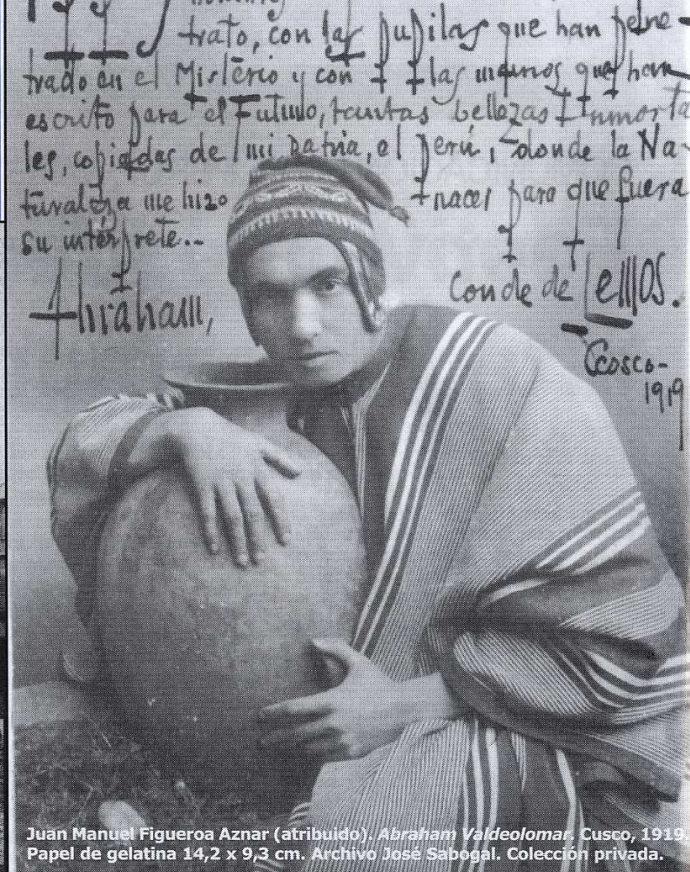 trato, con las pupilas que han pene-
trado en el Misterio y con las manos que han
escrito para el Futuro, tantas bellezas Inmorta
les, copiadas de mi Patria, el Perú, donde la Na-
turaleza me hizo nacer para que fuera
su intérprete..
Abraham, conde de Lemos.
Ccosco-
1919
Juan Manuel Figueroa Aznar (atribuido). Abraham Valdeolomar. Cusco, 1919.
Papel de gelatina 14,2 x 9,3 cm. Archivo José Sabogal. Colección privada.